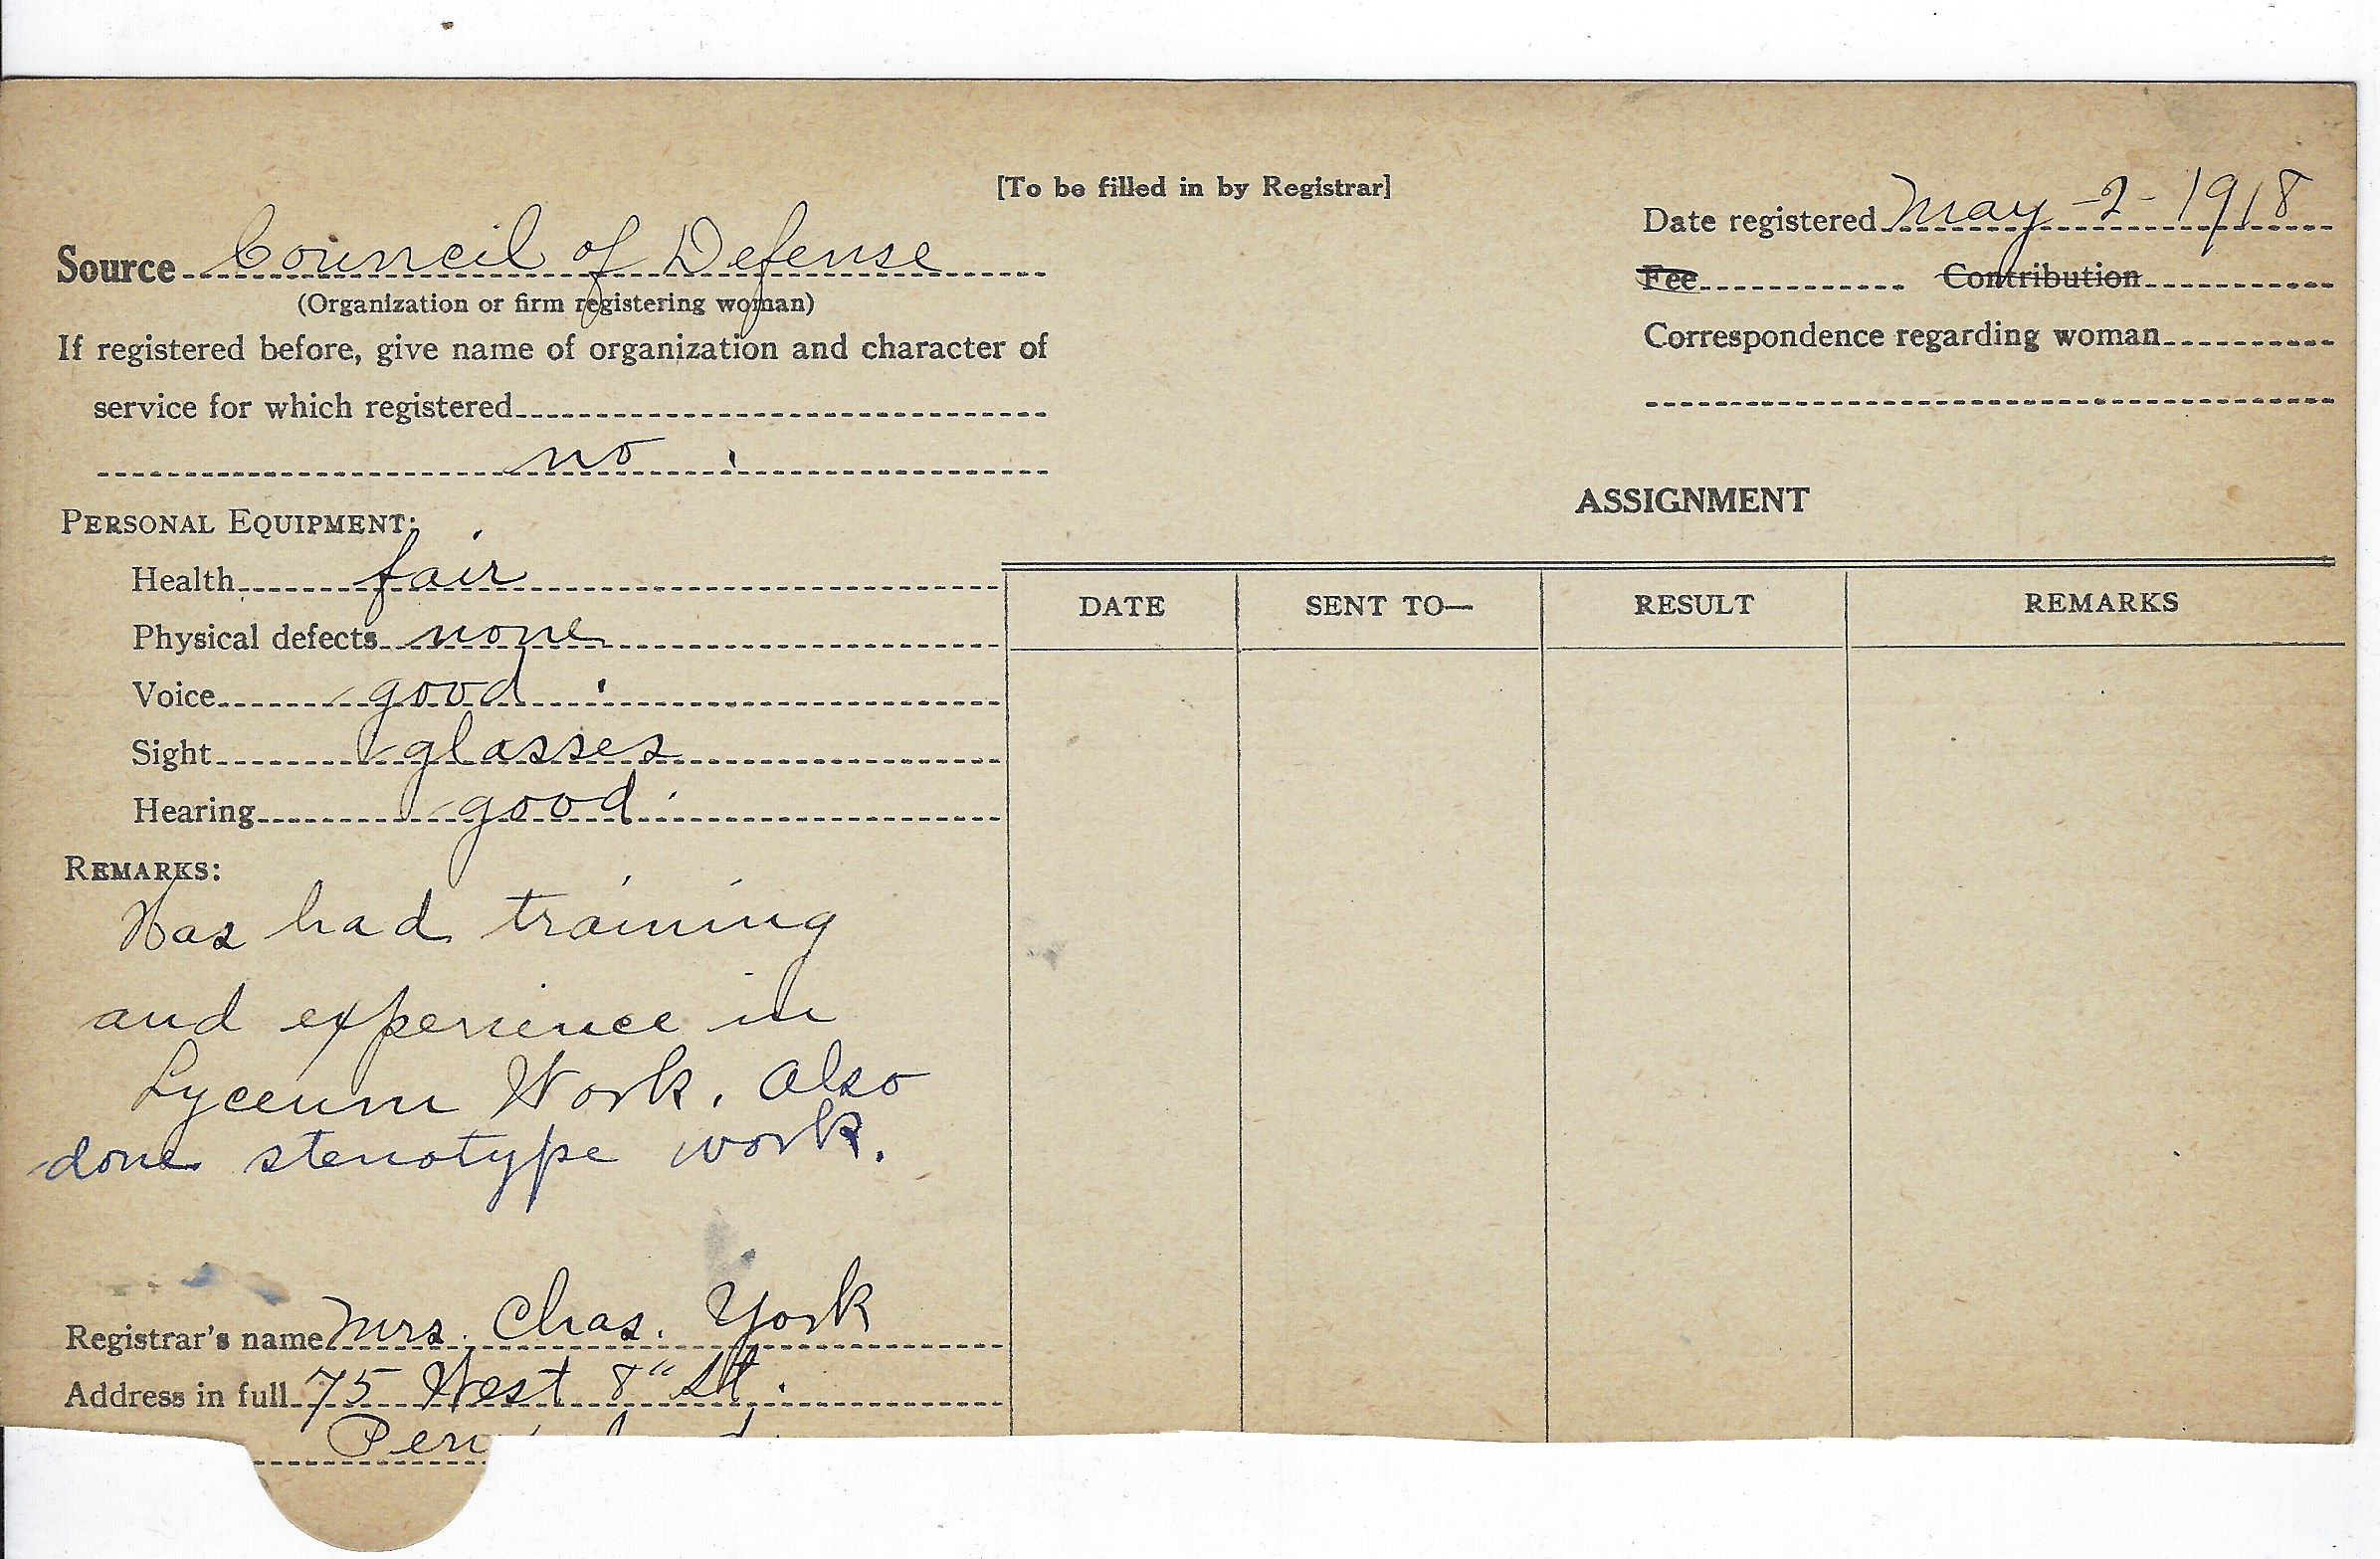 [To be filled in by Registrar]
Date registered May-2-1918
Source Council of Defense
(Organization or firm registering woman)
Fee Contribution
If registered before, give name of organization and character of
Correspondence regarding woman
service for which registered
no
PERSONAL EQUIPMENT:
ASSIGNMENT
Health fair
DATE SENT TO— RESULT REMARKS
Physical defects none
Voice good
Sight glasses
Hearing good
REMARKS:
Has had training
and experience in
Lyceum Work. Also
done stenotype work.
Registrar's name Mrs. Chas. York
Address in full 75 West 8" St.